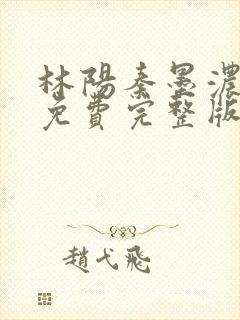 林陽秦墨濃
免費完整版
趙弋飛